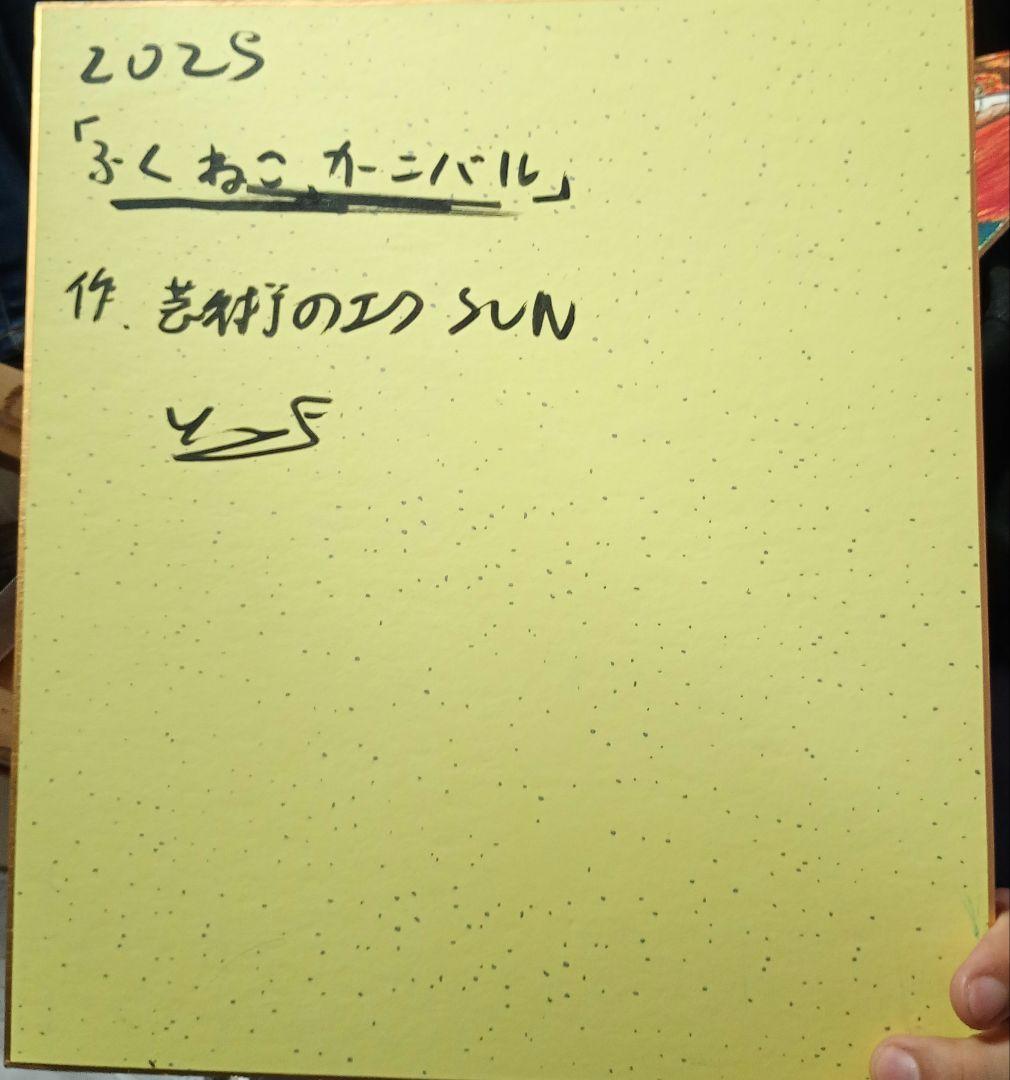 2025
「ふくねこ カーニバル」
作. 芸術のエク SUN